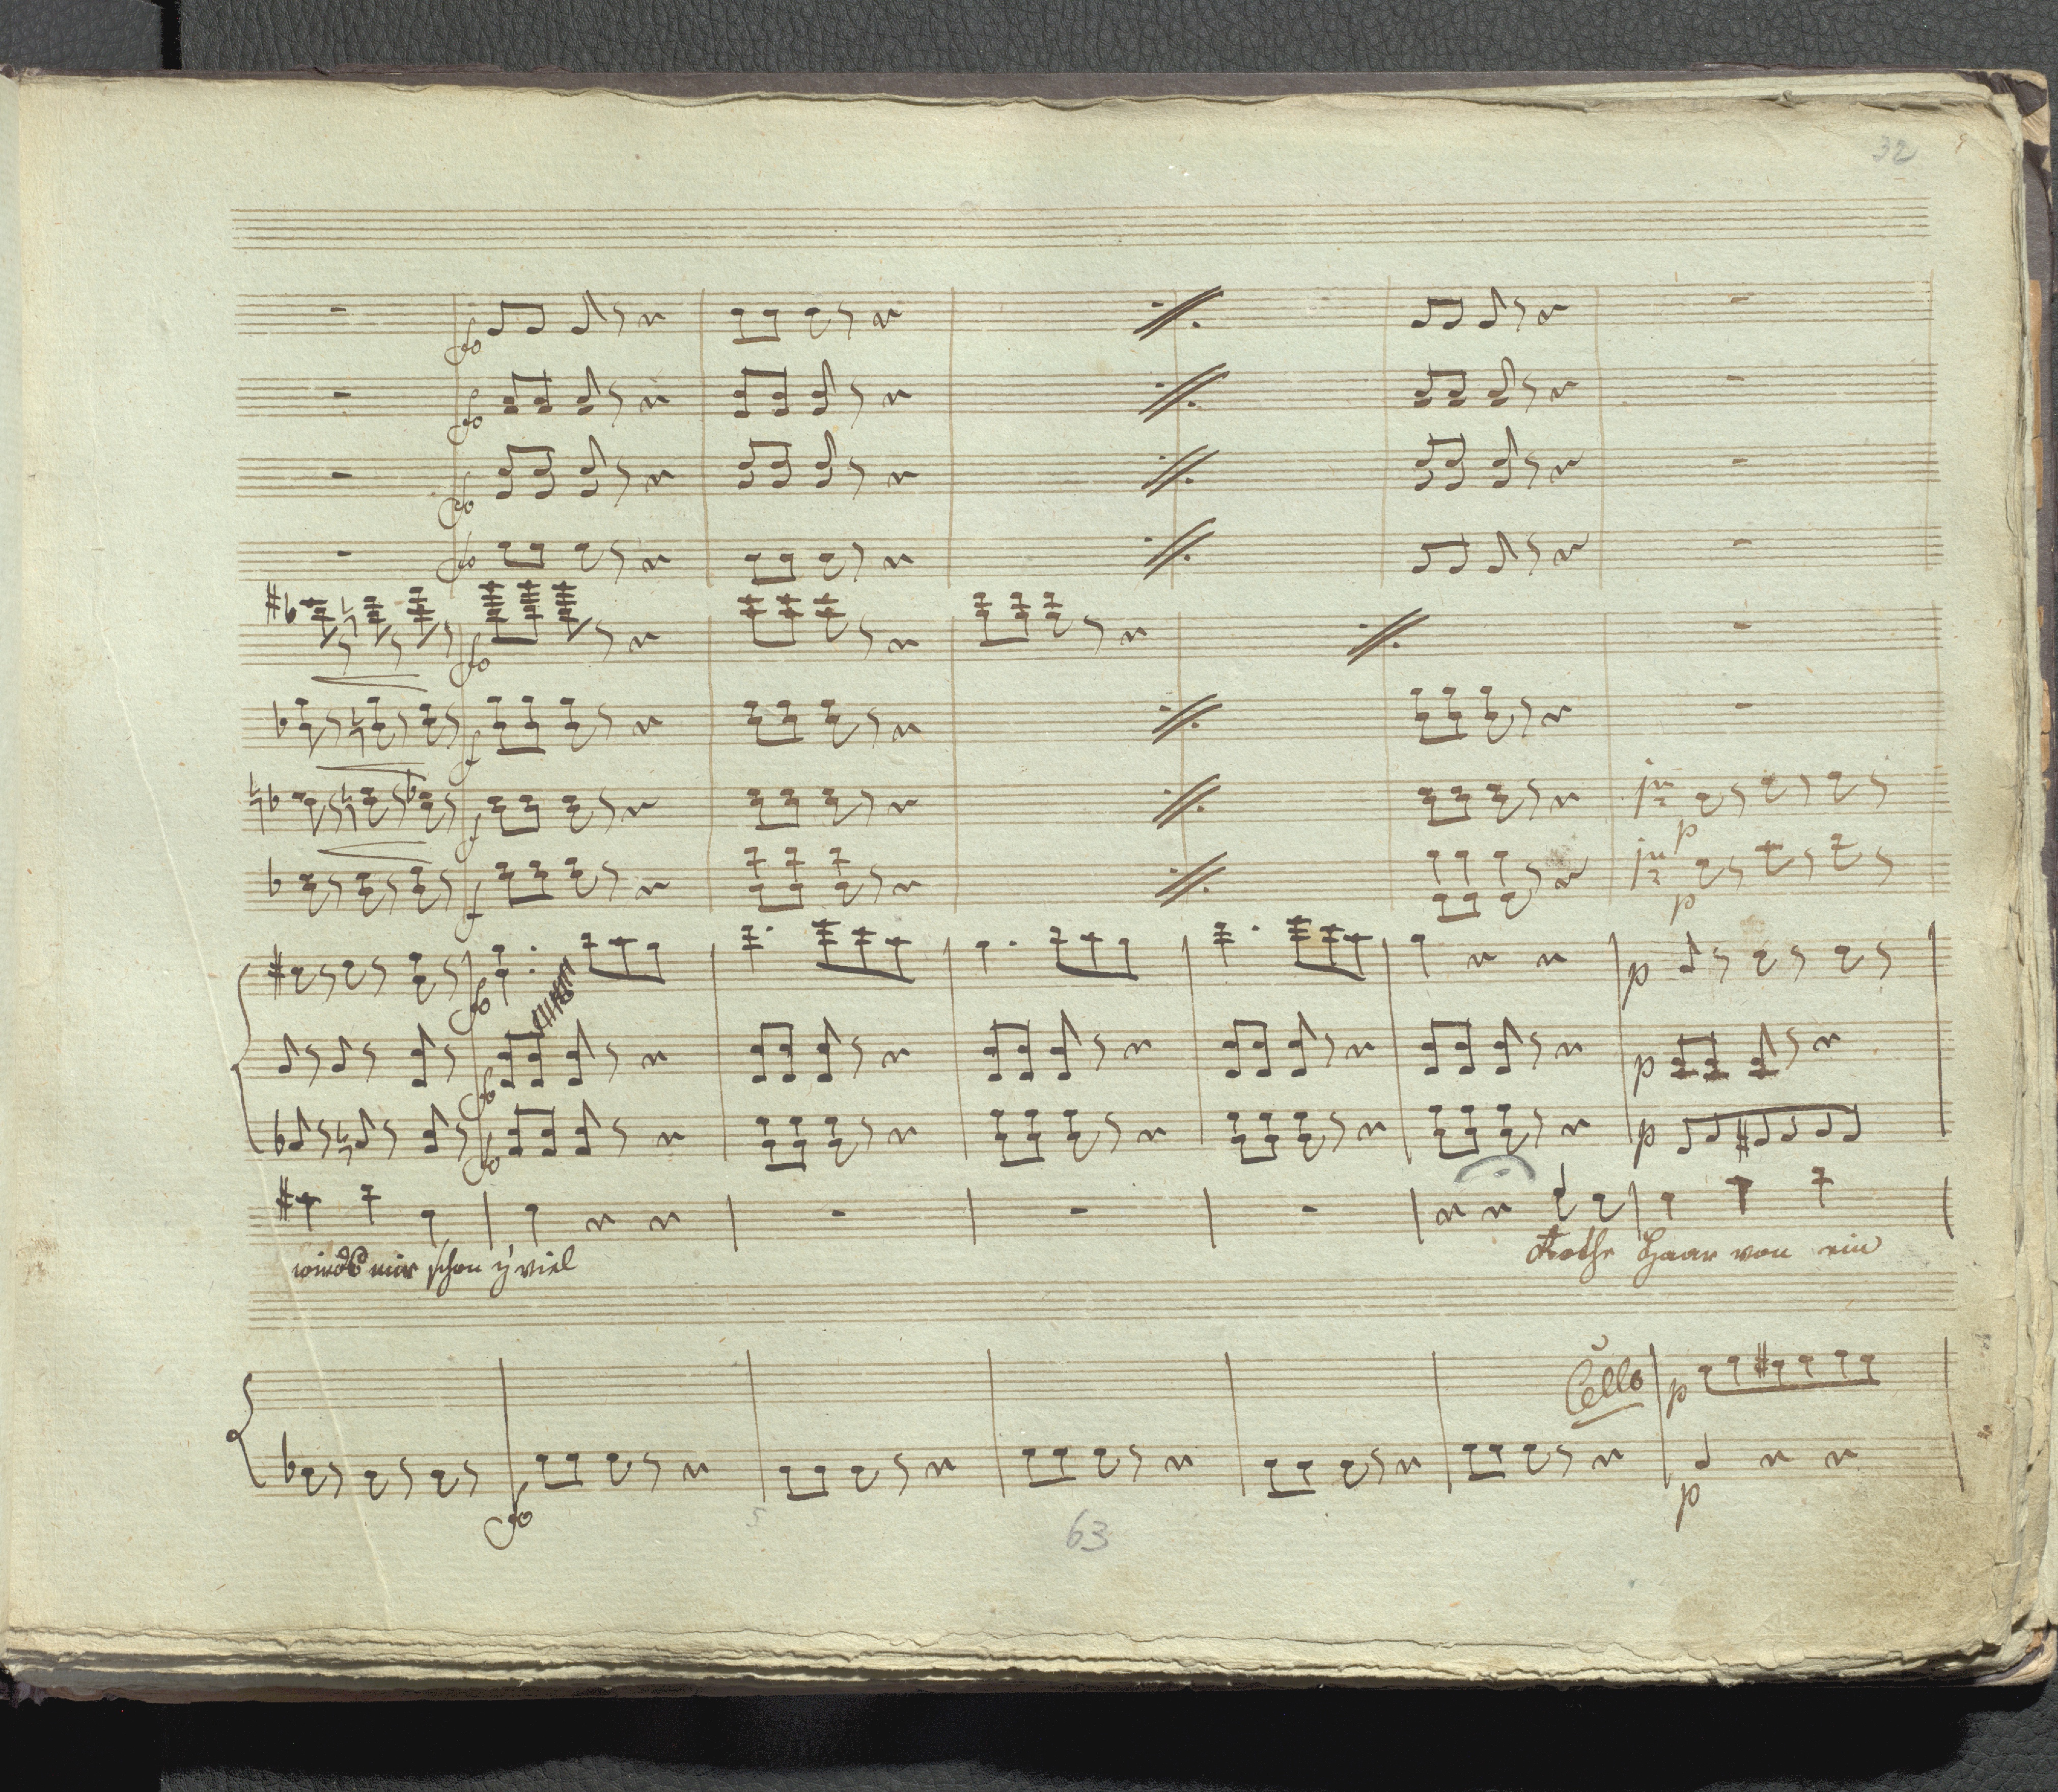 32
fo
fo
fo
fo
fo
f
f
f
in 2
p
in 2
p
fo
p
fo
p
fo
p
wird's mir schon z'viel
Rothe Haar von ein
Cello
p
fo
p
63